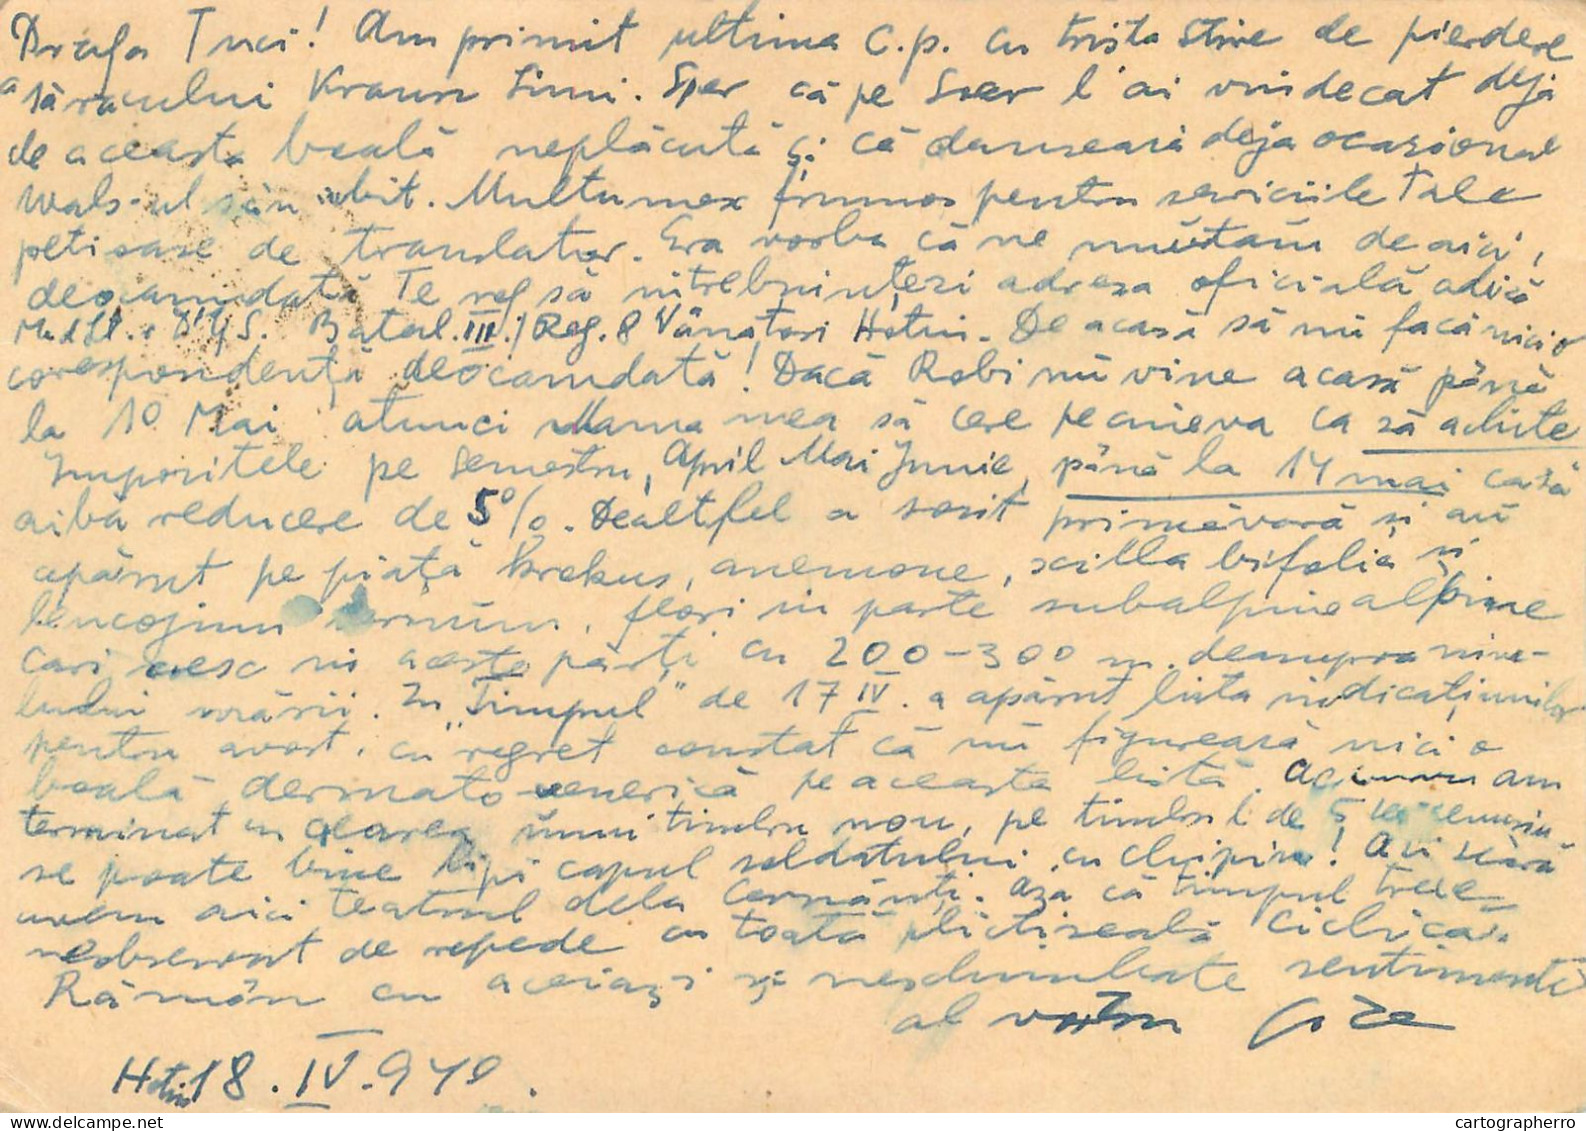 Draga Tuci! Am primit ultima c.p. cu trista stire de pierdere
a săracului Kraun Simi. Sper că pe Soer l'ai vindecat deja
de aceasta boală neplăcută și că dansează deja ocazional
Wals-ul său iubit. Multumesc frumos pentru serviciile Tale
de translator. Era vorba că ne mutăm de aici,
deocamdată Te rog să intrebuințezi adresa oficială adică
Batal. III./Reg. 8 Vânatori Hotin. De acasă să nu facă nici o
corespondență deocamdată! Dacă Robi nu vine acasă până
la 10 Mai atunci Mama mea să cere pe cineva ca să achite
Impozitele pe semestru, April Mai Junie, până la 14 mai ca să
aibă reducere de 5%. Dealtfel a sosit primăvară și au
apărut pe piață krokus, anemone, scilla bifolia și
leucojum vernum, flori in parte subalpine alpine
cari cresc in aceste părți cu 200-300 m. deasupra nive-
lului mării. In "Timpul" de 17 IV. a apărut lista indicațiunilor
pentru avort, cu regret constat că nu figurează nici o
boală dermato venerică pe aceasta listă. Acum am
terminat cu gravarea unui timbru nou, pe timbrul de 5 lei cenusiu
se poate bine lipi capul soldatului cu chipiu! Azi seară
avem aici teatrul dela Cernăuți. Așa că timpul trece
neobservat de repede cu toată plictiseală ciclica.
Rămân cu aceiași și neschimbate sentimente
al vostru
Hotin 18. IV. 940.
cartographerro